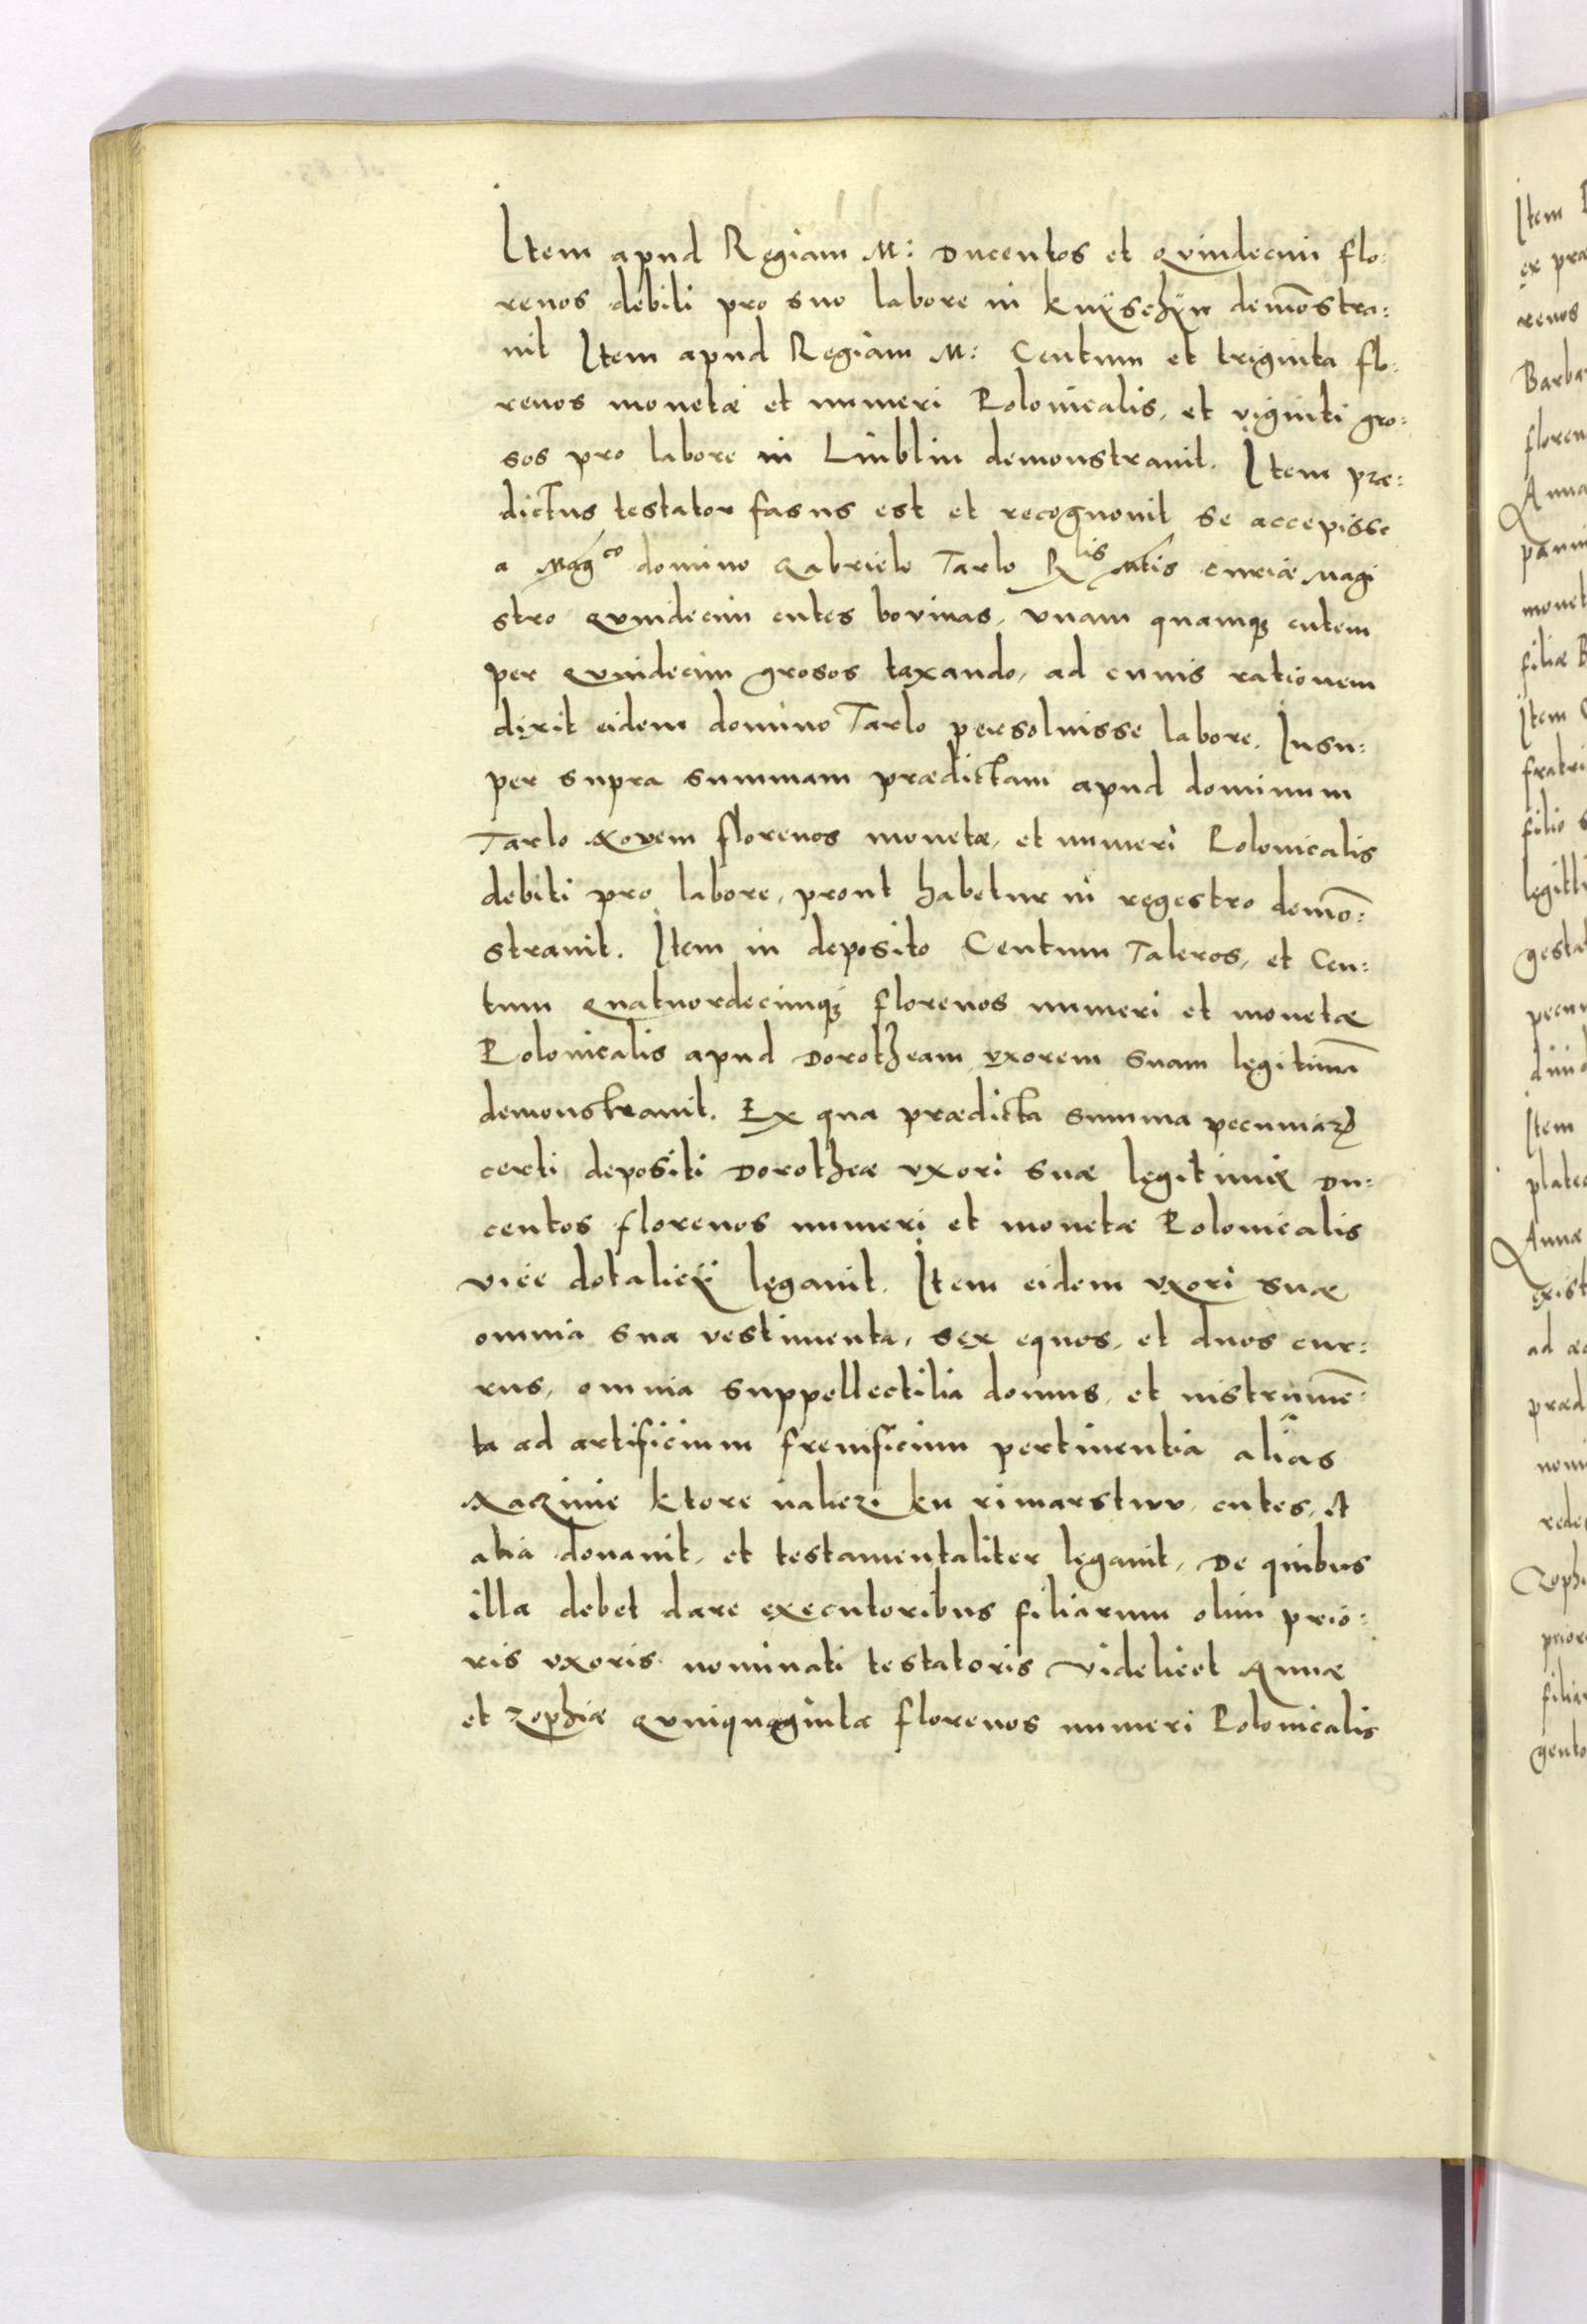 Item apud Regiam M: Ducentos et quindecim flo:
renos debiti pro suo labore in knÿschÿn demōstra:
uit Item apud Regiam M: Centum et triginta flo:
renos monetæ et numeri Polonicalis, et viginti gro:
sos pro labore in Liublin demonstrauit. Item præ:
dictus testator fasus est et recognouit se accepisse
a Mag^co domino Gabrielo Tarlo R^lis Mtis curiæ Magi
stro quindecim cutes bovinas, vnam quamqꝫ cutem
per quindecim grosos taxando, ad cuius rationem
dixit eidem domino Tarlo persoluisse labore. Insu:
per supra summam prædictam apud dominum
Tarlo Novem florenos monetæ, et numeri Polonicalis
debiti pro labore, prout habetur in regestro demō:
strauit. Item in deposito Centum Taleros, et Cen:
tum quatuordecimqꝫ florenos numeri et monetæ
Polonicalis apud Dorotheam vxorem suam legitimā
demonstrauit. Ex qua prædicta summa pecuniaꝝ
certi depositi Dorotheæ vxori suæ legitimæ Du:
centos florenos numeri et monetæ Polonicalis
vice dotalicÿ legauit. Item eidem vxori suæ
omnia sua vestimenta, sex equos, et duos cur:
rus, omnia suppellectilia domus, et instrumē:
ta ad artificium frenificium pertinentia alias
Naczinie ktore nalezi ku rimarstwu, cutes, et
alia donauit, et testamentaliter legauit, De quibus
illa debet dare executoribus filiarum olim prio:
ris vxoris nominati testatoris videlicet Annæ
et Zophiæ quinquaginta florenos numeri Polonicalis